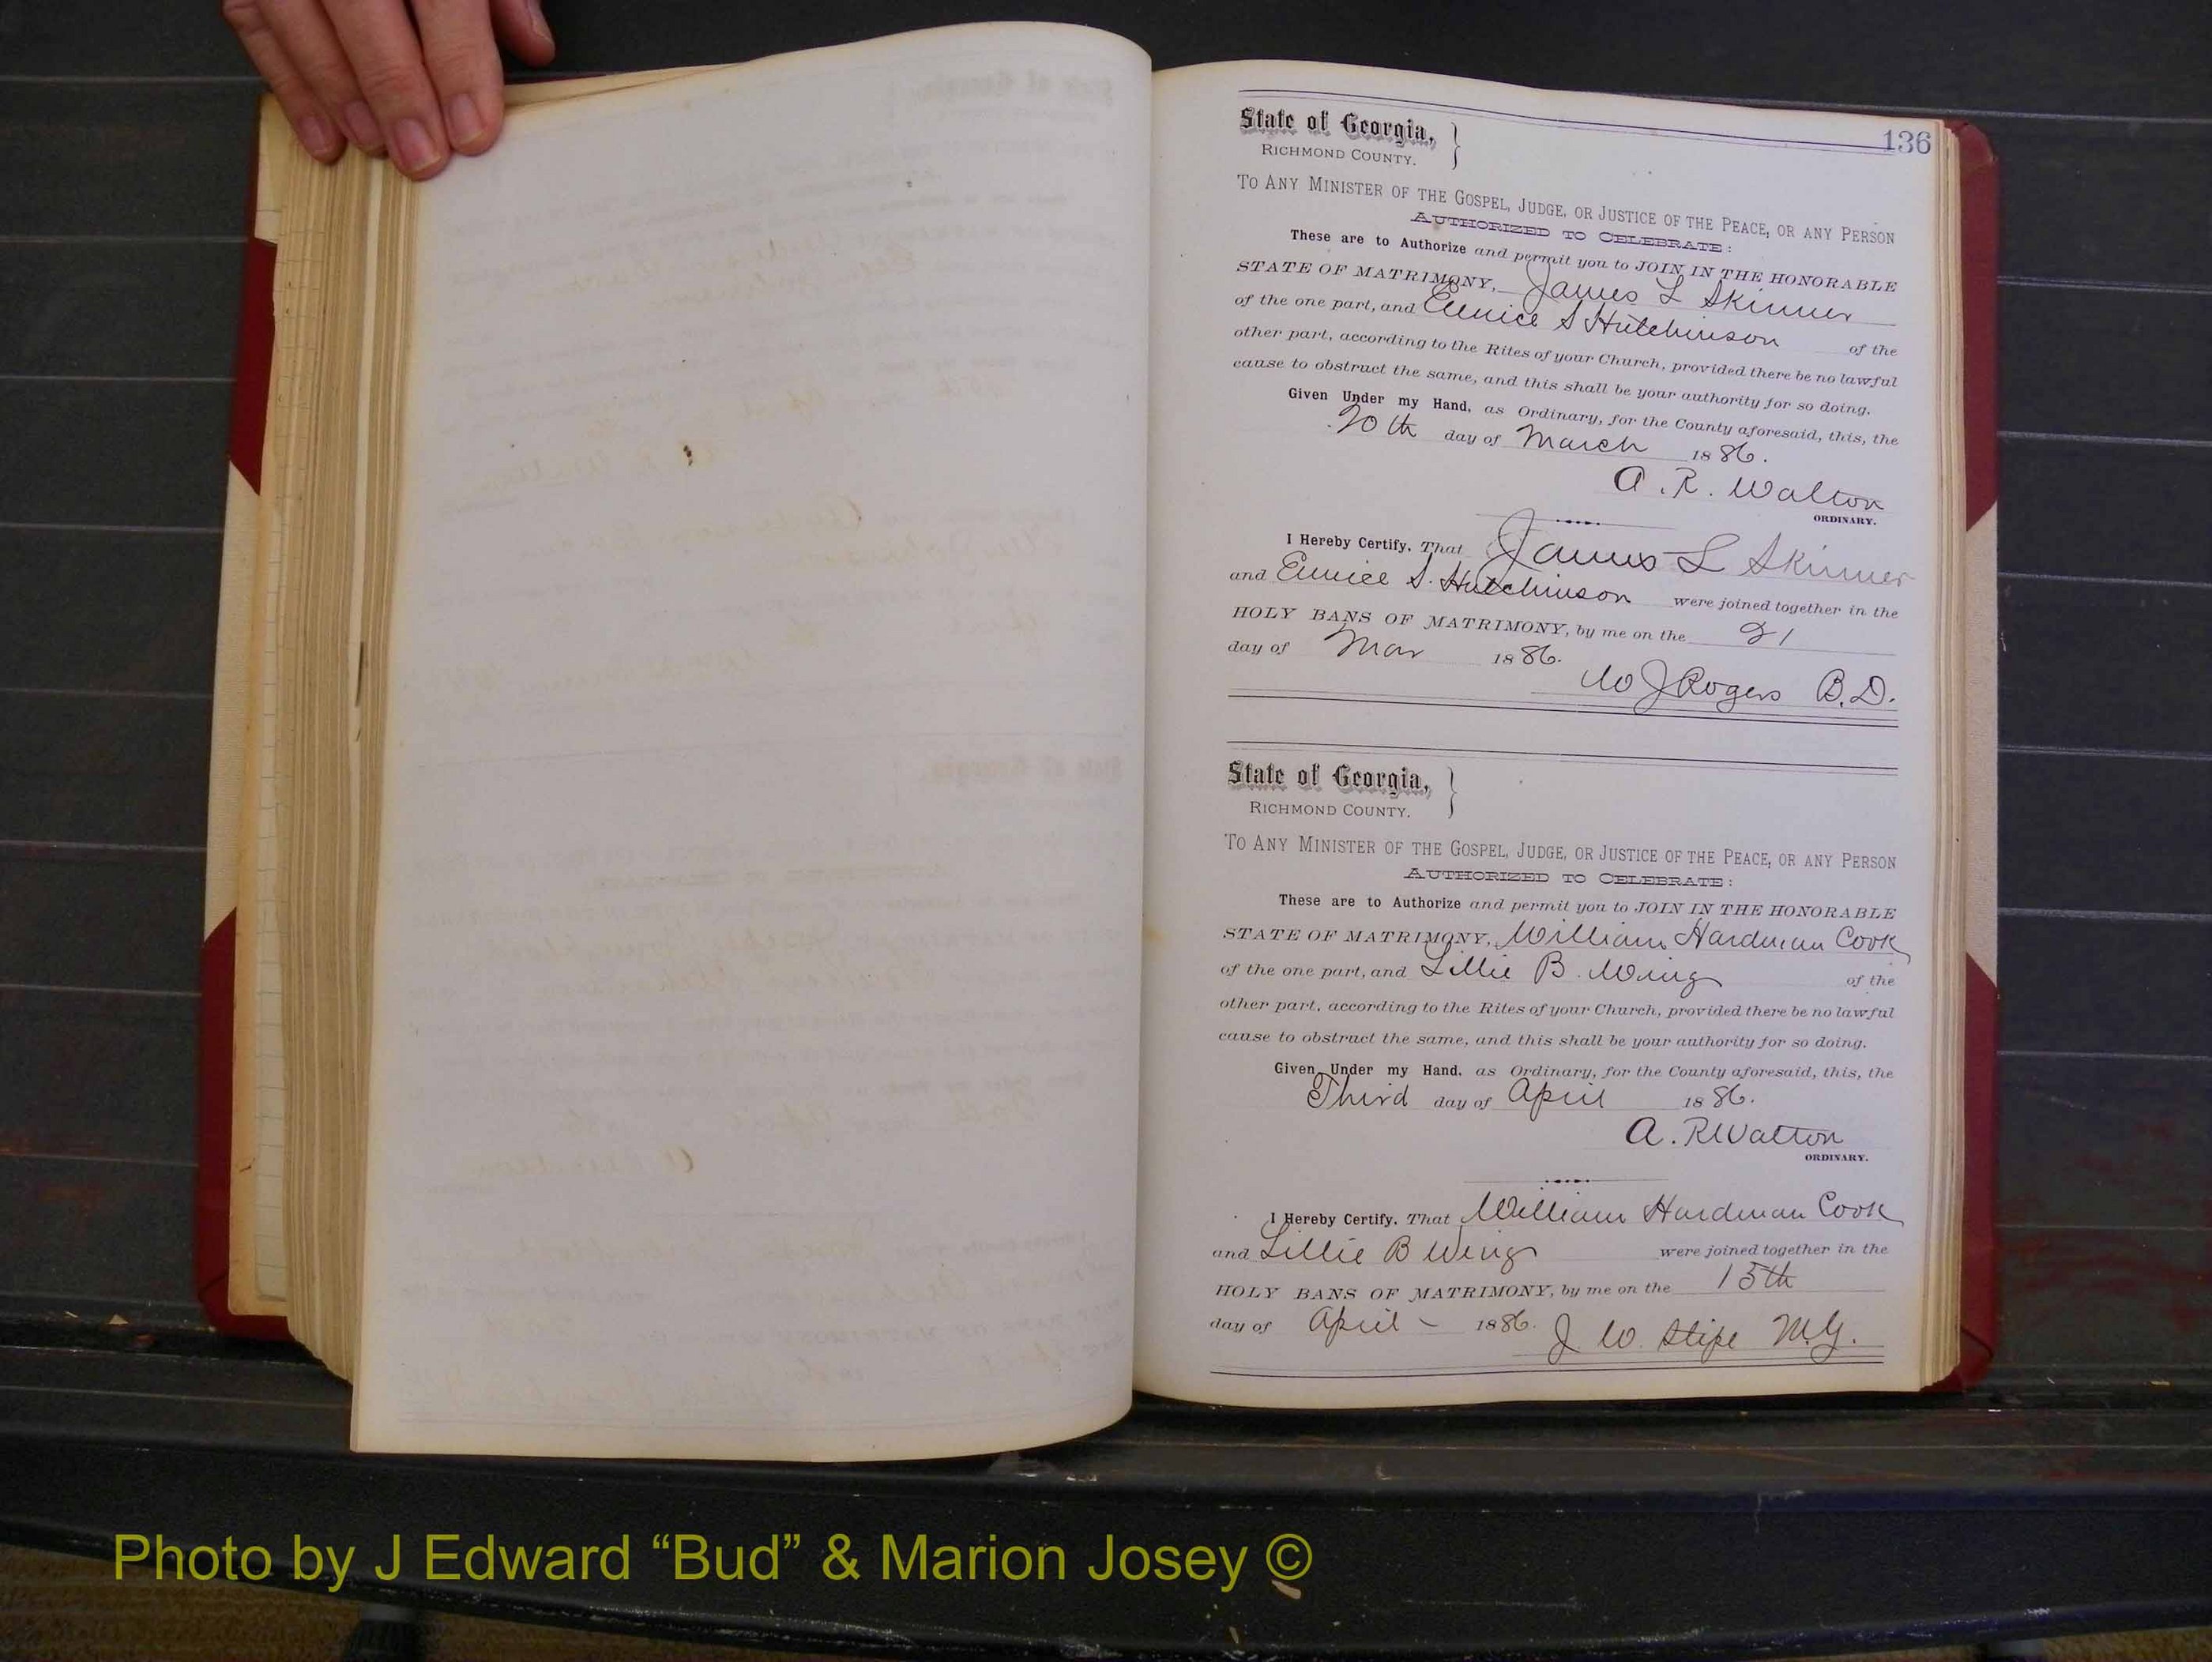 136
State of Georgia, }
RICHMOND COUNTY.
TO ANY MINISTER OF THE GOSPEL, JUDGE, OR JUSTICE OF THE PEACE, OR ANY PERSON
AUTHORIZED TO CELEBRATE:
These are to Authorize and permit you to JOIN IN THE HONORABLE
STATE OF MATRIMONY, James L Skinner
of the one part, and Eunice S Hutchinson of the
other part, according to the Rites of your Church, provided there be no lawful
cause to obstruct the same, and this shall be your authority for so doing.
Given Under my Hand, as Ordinary, for the County aforesaid, this, the
20th day of March 1886.
A. R. Walton
ORDINARY.
I Hereby Certify, That James L Skinner
and Eunice S. Hutchinson were joined together in the
HOLY BANS OF MATRIMONY, by me on the 21
day of Mar 1886.
W J Rogers B.D.
State of Georgia, }
RICHMOND COUNTY.
TO ANY MINISTER OF THE GOSPEL, JUDGE, OR JUSTICE OF THE PEACE, OR ANY PERSON
AUTHORIZED TO CELEBRATE:
These are to Authorize and permit you to JOIN IN THE HONORABLE
STATE OF MATRIMONY, William Hardman Cook
of the one part, and Lillie B. Wing of the
other part, according to the Rites of your Church, provided there be no lawful
cause to obstruct the same, and this shall be your authority for so doing.
Given Under my Hand, as Ordinary, for the County aforesaid, this, the
Third day of April 1886.
A. R Walton
ORDINARY.
I Hereby Certify, That William Hardman Cook
and Lillie B Wing were joined together in the
HOLY BANS OF MATRIMONY, by me on the 15th
day of April - 1886. J W. Stipe M.G.
Photo by J Edward “Bud” & Marion Josey ©